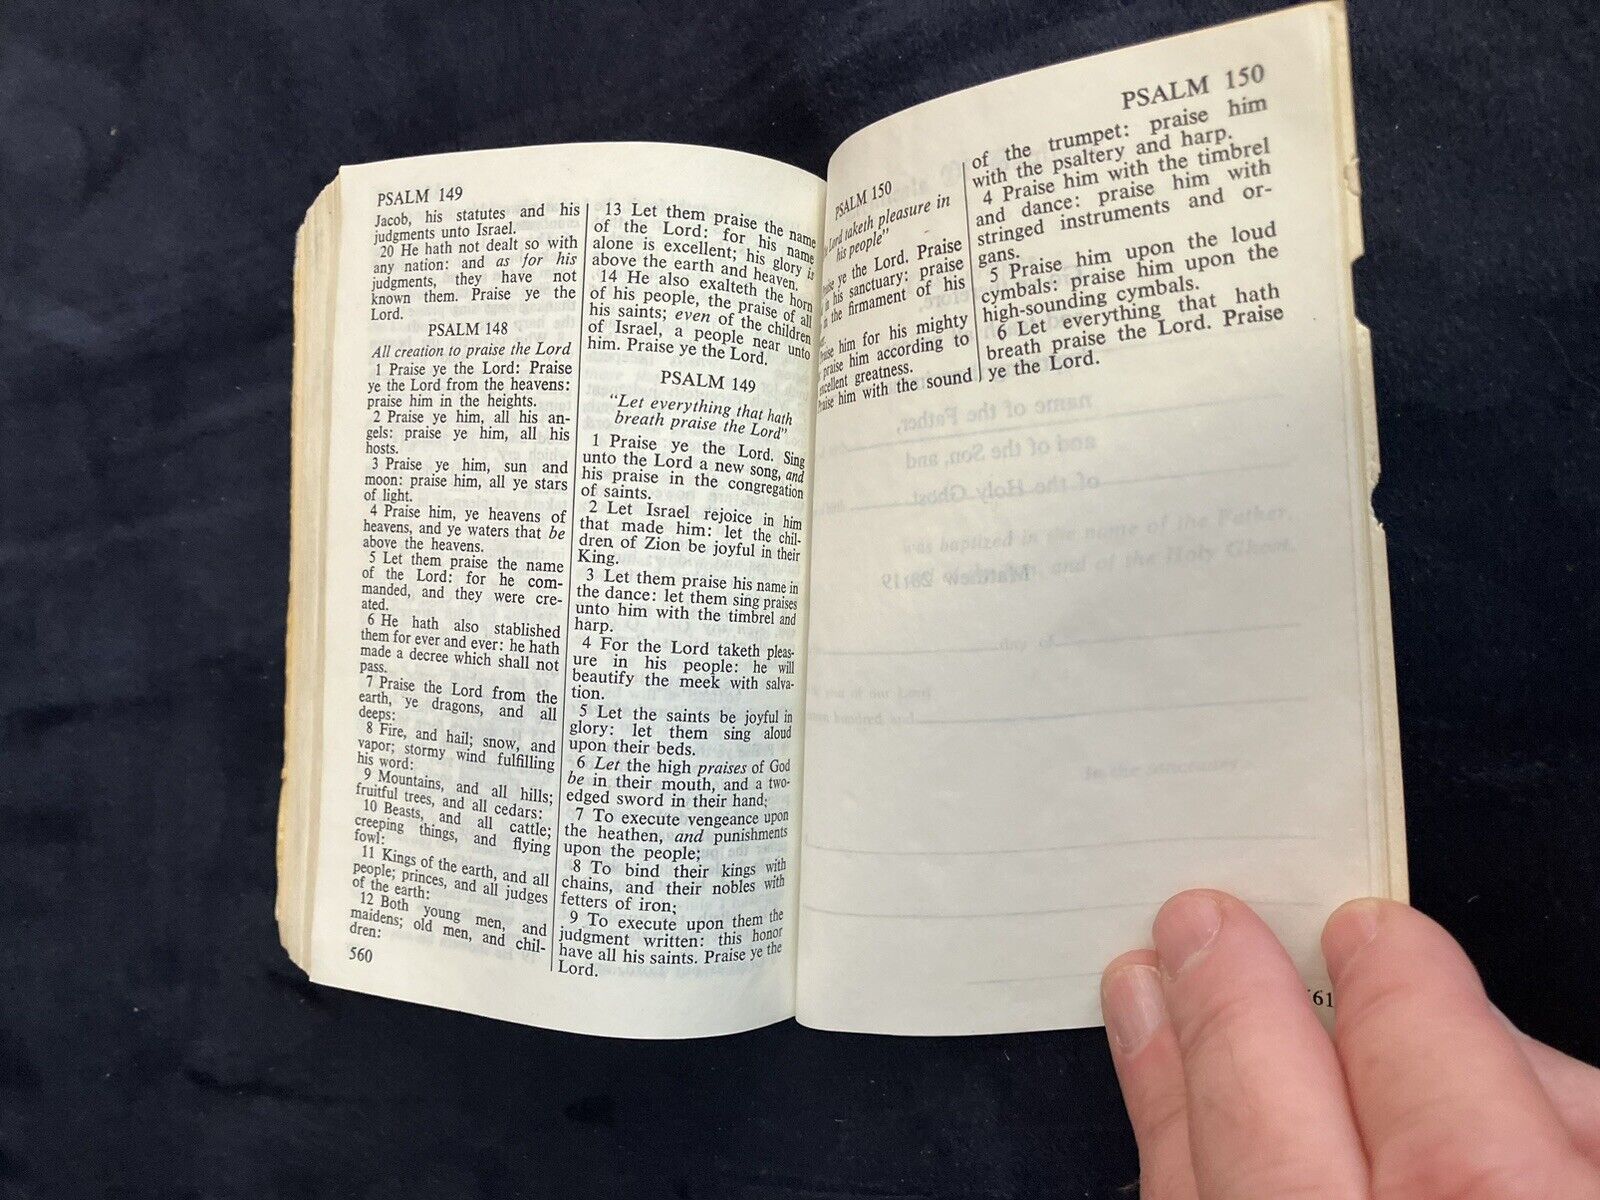 PSALM 149
Jacob, his statutes and his
judgments unto Israel.
20 He hath not dealt so with
any nation: and as for his
judgments, they have not
known them. Praise ye the
Lord.
PSALM 148
All creation to praise the Lord
1 Praise ye the Lord: Praise
ye the Lord from the heavens:
praise him in the heights.
2 Praise ye him, all his an-
gels: praise ye him, all his
hosts.
3 Praise ye him, sun and
moon: praise him, all ye stars
of light.
4 Praise him, ye heavens of
heavens, and ye waters that be
above the heavens.
5 Let them praise the name
of the Lord: for he com-
manded, and they were cre-
ated.
6 He hath also stablished
them for ever and ever: he hath
made a decree which shall not
pass.
7 Praise the Lord from the
earth, ye dragons, and all
deeps:
8 Fire, and hail; snow, and
vapor; stormy wind fulfilling
his word:
9 Mountains, and all hills;
fruitful trees, and all cedars:
10 Beasts, and all cattle;
creeping things, and flying
fowl:
11 Kings of the earth, and all
people; princes, and all judges
of the earth:
12 Both young men, and
maidens; old men, and chil-
dren:
560
13 Let them praise the name
of the Lord: for his name
alone is excellent; his glory is
above the earth and heaven.
14 He also exalteth the horn
of his people, the praise of all
his saints; even of the children
of Israel, a people near unto
him. Praise ye the Lord.
PSALM 149
"Let everything that hath
breath praise the Lord"
1 Praise ye the Lord. Sing
unto the Lord a new song, and
his praise in the congregation
of saints.
2 Let Israel rejoice in him
that made him: let the chil-
dren of Zion be joyful in their
King.
3 Let them praise his name in
the dance: let them sing praises
unto him with the timbrel and
harp.
4 For the Lord taketh pleas-
ure in his people: he will
beautify the meek with salva-
tion.
5 Let the saints be joyful in
glory: let them sing aloud
upon their beds.
6 Let the high praises of God
be in their mouth, and a two-
edged sword in their hand;
7 To execute vengeance upon
the heathen, and punishments
upon the people;
8 To bind their kings with
chains, and their nobles with
fetters of iron;
9 To execute upon them the
judgment written: this honor
have all his saints. Praise ye the
Lord.
PSALM 150
PSALM 150
Lord taketh pleasure in
his people"
ye the Lord. Praise
in his sanctuary: praise
in the firmament of his
him for his mighty
praise him according to
excellent greatness.
Praise him with the sound
of the trumpet: praise him
with the psaltery and harp.
4 Praise him with the timbrel
and dance: praise him with
stringed instruments and or-
gans.
5 Praise him upon the loud
cymbals: praise him upon the
high-sounding cymbals.
6 Let everything that hath
breath praise the Lord. Praise
ye the Lord.
name of the Father,
and of the Son, and
of the Holy Ghost
was baptized in the name of the Father,
and of the Holy Ghost.
Matthew 28:19
day of
of our Lord
hundred, and
In the
61